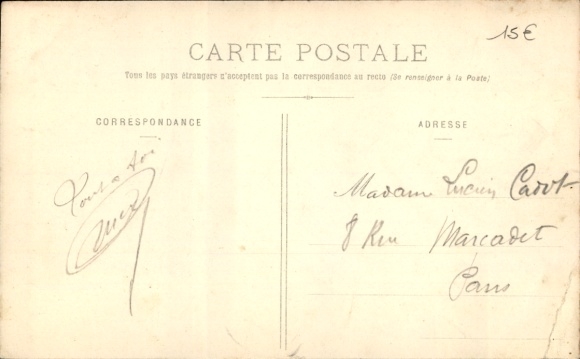 15€
CARTE POSTALE
Tous les pays étrangers n'acceptent pas la correspondance au recto (Se renseigner à la Poste)
CORRESPONDANCE
ADRESSE
Tout à toi
Madame Lucien Cadot
8 Rue Marcadet
Paris